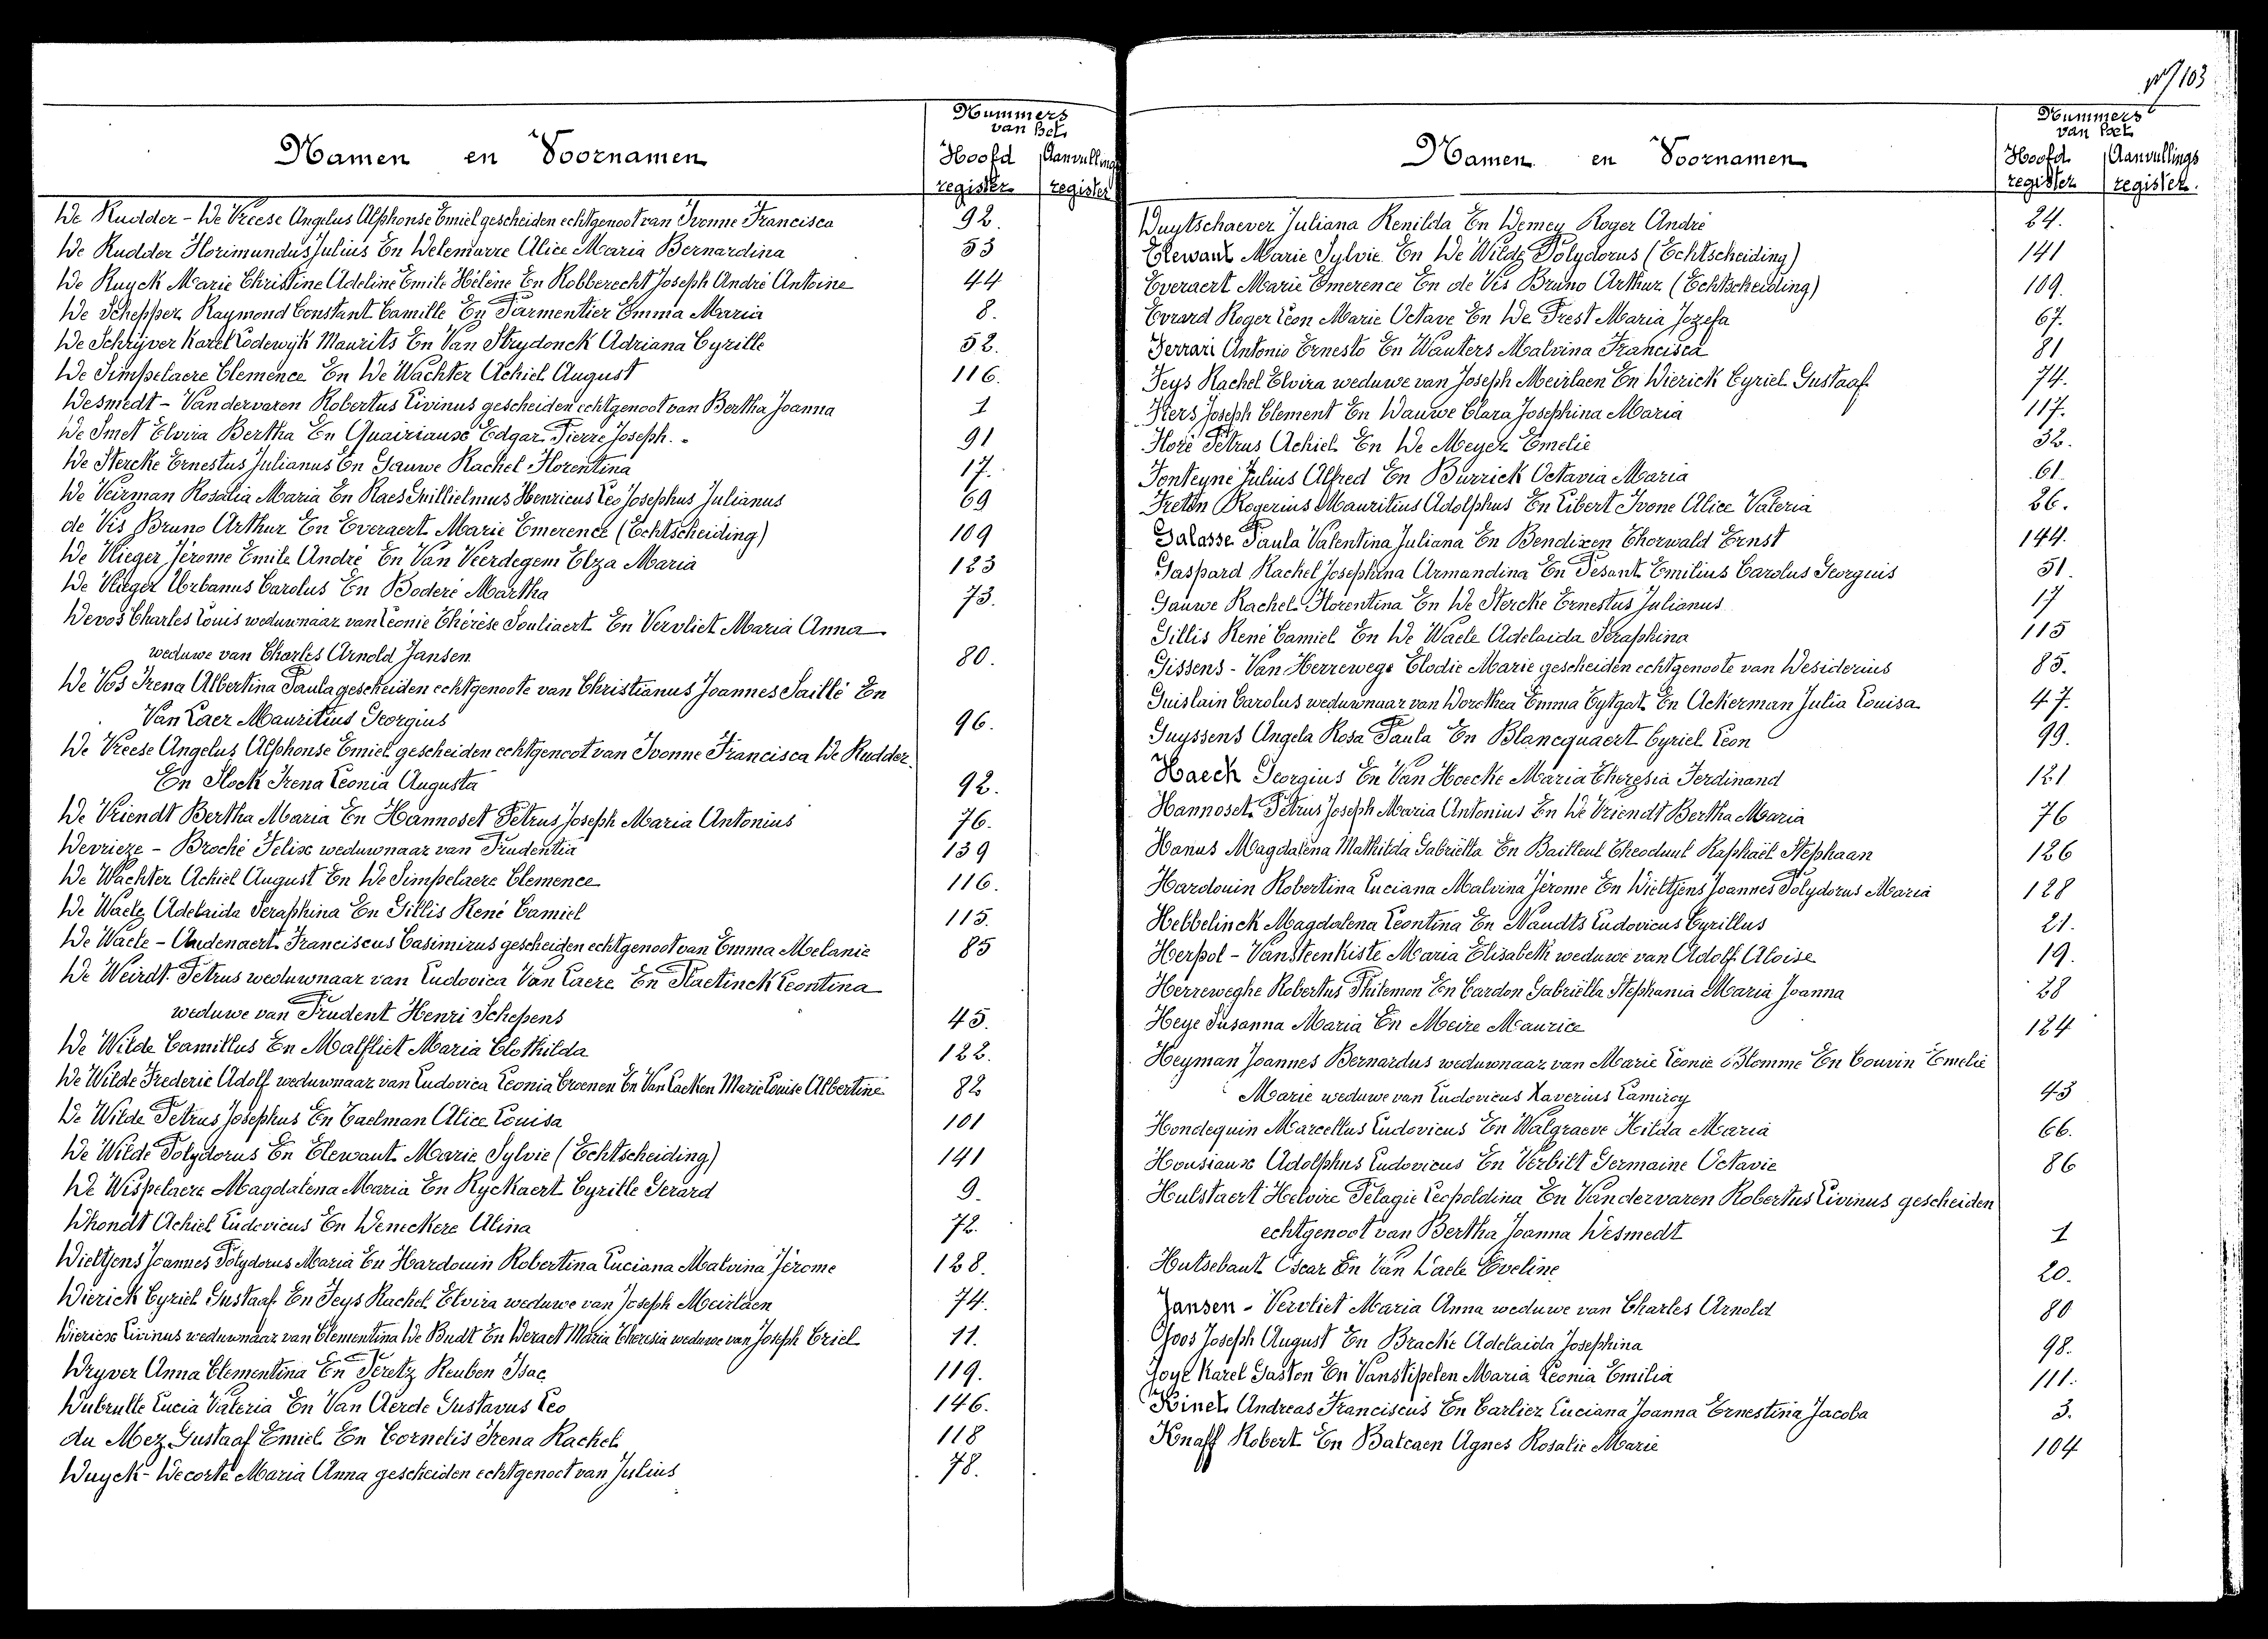 Nº 103
Namen en Voornamen
Nummers van het
Hoofd register
Aanvullings register
De Rudder - De Vreese Angelus Alphonse Emiel gescheiden echtgenoot van Ivonne Francisca 92.
De Rudder Florimundus Julius En Delemarre Alice Maria Bernardina 53
De Ruyck Marie Christine Adeline Emile Hélène En Robberecht Joseph André Antoine 44
De Schepper Raymond Constant Camille En Parmentier Emma Maria 8.
De Schrijver Karel Lodewijk Maurits En Van Strydonck Adriana Cyrille 52.
De Simpelaere Clemence En De Wachter Achiel August 116.
Desmedt - Vandervaren Robertus Livinus gescheiden echtgenoot van Bertha Joanna 1
De Smet Elvira Bertha En Quairiaux Edgar Pierre Joseph. 91
De Stercke Ernestus Julianus En Gauwe Rachel Florentina 17.
De Veirman Rosalia Maria En Raes Guillielmus Henricus Leo Josephus Julianus 69
de Vis Bruno Arthur En Everaert Marie Emerence (Echtscheiding) 109
De Vlieger Jérome Emile André En Van Veerdegem Elza Maria 123
De Vlieger Urbanus Carolus En Boderé Martha 73.
Devos Charles Louis weduwnaar van Léonie Thérèse Souliaert En Vervliet Maria Anna
weduwe van Charles Arnold Jansen 80.
De Vos Irena Albertina Paula gescheiden echtgenoote van Christianus Joannes Saillé En
Van Laer Mauritius Georgius 96.
De Vreese Angelus Alphonse Emiel gescheiden echtgenoot van Ivonne Francisca De Rudder
En Stock Irena Leonia Augusta 92.
De Vriendt Bertha Maria En Hannoset Petrus Joseph Maria Antonius 76.
Devrieze - Broché Felix weduwnaar van Prudentia 139
De Wachter Achiel August En De Simpelaere Clemence 116.
De Waele Adelaida Seraphina En Gillis René Camiel 115.
De Waele - Audenaert Franciscus Casimirus gescheiden echtgenoot van Emma Melanie 85
De Weirdt Petrus weduwnaar van Ludovica Van Laere En Staelinck Leontina
weduwe van Prudent Henri Schepens 45.
De Wilde Camillus En Malfliet Maria Clothilda 122.
De Wilde Frederic Adolf weduwnaar van Ludovica Leonia Croenen En Van Laeken Marie Louise Albertine 82
De Wilde Petrus Josephus En Taelman Alice Louisa 101
De Wilde Polydorus En Elewaut Marie Sylvie (Echtscheiding) 141
De Wispelaere Magdalena Maria En Ryckaert Cyrille Gerard 9.
Dhondt Achiel Ludovicus En Deneckere Alina 72.
Dieltjens Joannes Polydorus Maria En Hardouin Robertina Luciana Malvina Jérome 128.
Dierick Cyriel Gustaaf En Feys Rachel Elvira weduwe van Joseph Meirlaen 74.
Diericx Livinus weduwnaar van Clementina De Budt En Deraet Maria Theresia weduwe van Joseph Criel 11.
Dryver Anna Clementina En Peretz Reuben Isac 119.
Dubrulle Lucia Valeria En Van Aerde Gustavus Leo 146.
du Mez Gustaaf Emiel En Cornelis Irena Rachel 118
Duyck - Decorte Maria Anna gescheiden echtgenoot van Julius 78.
Namen en Voornamen
Nummers van het
Hoofd register
Aanvullings register.
Duytschaever Juliana Renilda En Demey Roger André 24.
Elewaut Marie Sylvie En De Wilde Polydorus (Echtscheiding) 141
Everaert Marie Emerence En de Vis Bruno Arthur (Echtscheiding) 109.
Evrard Roger Léon Marie Octave En De Prest Maria Jozefa 67.
Ferrari Antonio Ernesto En Wauters Malvina Francisca 81
Feys Rachel Elvira weduwe van Joseph Meirlaen En Dierick Cyriel Gustaaf 74.
Fiers Joseph Clement En Dauwe Clara Josephina Maria 117.
Floré Petrus Achiel En De Meyer Emelie 32.
Fonteyne Julius Alfred En Burrick Octavia Maria 61
Freton Rogerius Mauritius Adolphus En Libert Ivone Alice Valeria 26.
Galasse Paula Valentina Juliana En Bendixen Thorwald Ernst 144.
Gaspard Rachel Josephina Armandina En Pesant Emilius Carolus Georguis 51.
Gauwe Rachel Florentina En De Stercke Ernestus Julianus 17
Gillis René Camiel En De Waele Adelaida Seraphina 115
Gissens - Van Herrewege Elodie Marie gescheiden echtgenoote van Desiderius 85.
Guislain Carolus weduwnaar van Dorothea Emma Eytgat En Ackerman Julia Louisa 47.
Guyssens Angela Rosa Paula En Blancquaert Cyriel Leon 99.
Haeck Georgius En Van Hoecke Maria Theresia Ferdinand 121
Hannoset Petrus Joseph Maria Antonius En De Vriendt Bertha Maria 76
Hanus Magdalena Mathilda Gabriëlla En Bailleul Theoduul Raphaël Stephaan 126
Hardouin Robertina Luciana Malvina Jérome En Dieltjens Joannes Polydorus Maria 128
Hebbelinck Magdalena Leontina En Naudts Ludovicus Cyrillus 21.
Herpol - Vansteenkiste Maria Elisabeth weduwe van Adolf Aloise 19.
Herreweghe Robertus Philemon En Cardon Gabriëlla Stephania Maria Joanna 28
Heye Susanna Maria En Meire Maurice 124
Heyman Joannes Bernardus weduwnaar van Marie Léonie Blomme En Couvin Emelie
Marie weduwe van Ludovicus Xaverius Lamiroy 43
Hondequin Marcellus Ludovicus En Walgraeve Hilda Maria 66.
Housiaux Adolphus Ludovicus En Verbilt Germaine Octavie 86
Hulstaert Helvire Pélagie Leopoldina En Vandervaren Robertus Livinus gescheiden
echtgenoot van Bertha Joanna Desmedt 1
Hutsebaut Oscar En Van Daele Eveline 20.
Jansen - Vervliet Maria Anna weduwe van Charles Arnold 80
Joos Joseph August En Bracke Adelaida Josephina 98.
Joye Karel Gaston En Vanstipelen Maria Leonia Emilia 111.
Kinet Andreas Franciscus En Carlier Luciana Joanna Ernestina Jacoba 3.
Knaff Robert En Balcaen Agnes Rosalie Marie 104